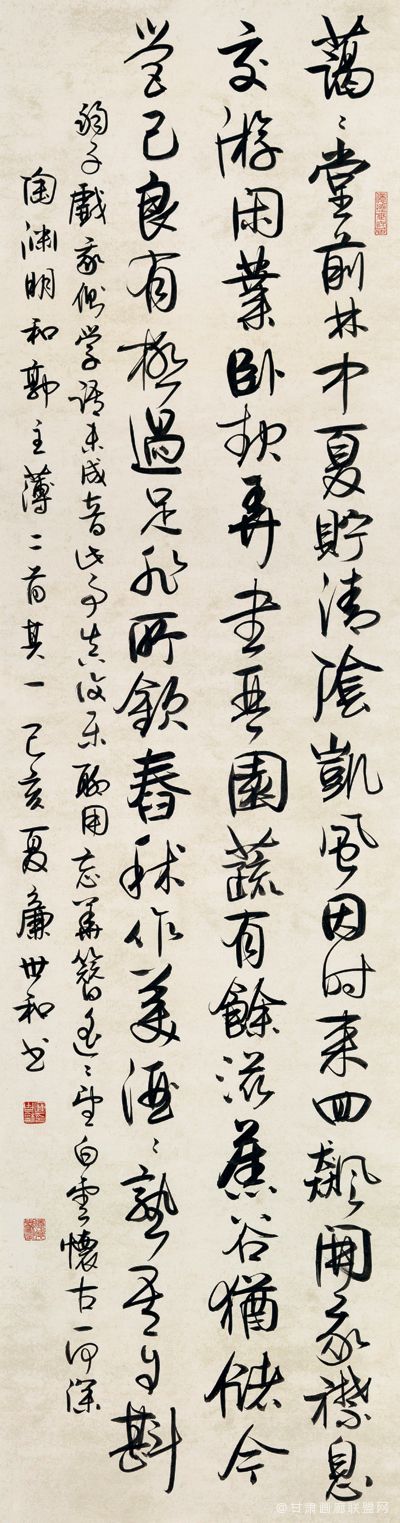 藹〻堂前林中夏貯清陰凱風因时来回飆開我襟息
交游閑業卧起弄書琴園蔬有餘滋舊谷猶儲今
營己良有極過足非所欽舂秫作美酒〻熟吾自斟
弱子戲我側学語未成音此事真復乐聊用忘華簪遥〻望白雲懷古一何深
陶渊明和郭主薄二首其一 己亥夏廉世和书
@甘肃画廊联盟网